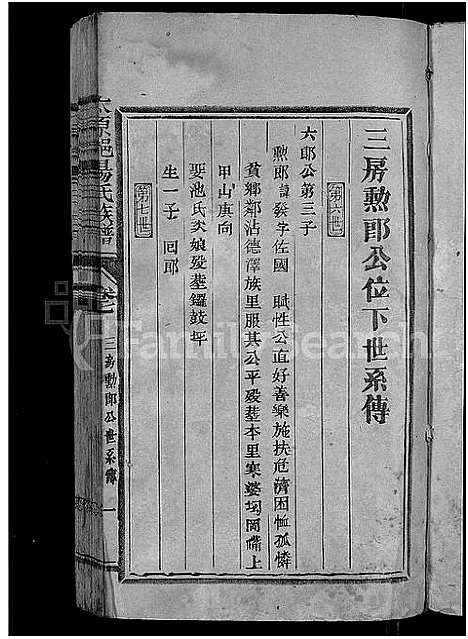 三房勲郎公位下世系傳
第六世
六郎公第三子
勲郎諱發字佐國 賦性公直好善樂施扶危濟困恤孤憐
貧鄉鄰沾德澤族里服其公平歿塟本里寒婆坳岡嘴上
甲山庚向
娶池氏六娘歿塟鑼鼓坪
生一子 回郎
第七世
太原郡楊氏族譜
卷一
三房勲郎公世系傳
一
FamilySearch